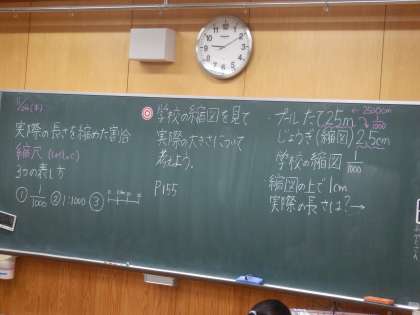 実際の長さを縮めた割合
縮尺（しゅくしゃく）
3つの表し方
① 1/1000 ② 1:1000 ③
学校の縮図を見て
実際の大きさについて
考えよう。
P155
プールたて25m ← 2500cm
じょうぎ（縮図）2.5cm 1/1000
学校の縮図 1/1000
縮図の上で1cm
実際の長さは？→